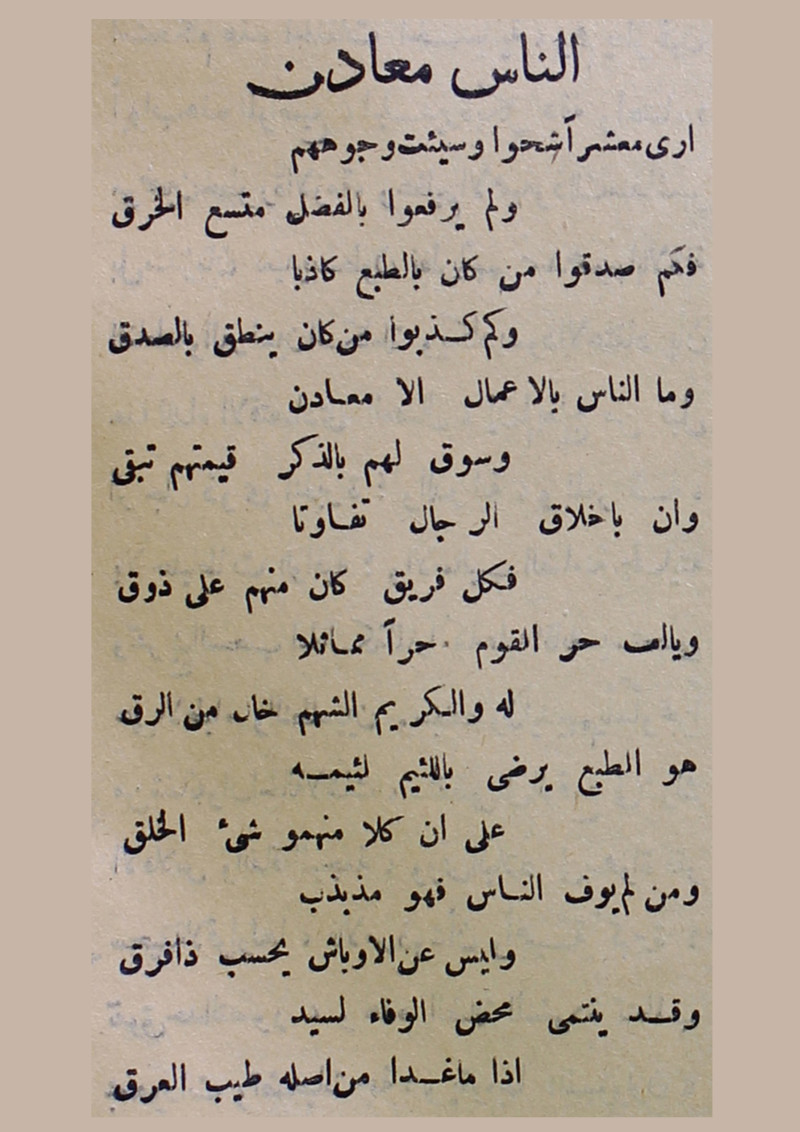 الناس معادن
ارى معشراً شحوا وسيئت وجوههم
ولم يرفعوا بالفضل متسع الخرق
فكم صدقوا من كان بالطبع كاذبا
وكم كـذبوا من كان ينطق بالصدق
وما الناس بالاعمال الا معـادن
وسوق لهم بالذكر قيمتهم تبقى
وان باخلاق الرجال تفـاوتا
فكل فريق كان منهم على ذوق
ويالف حر القوم حراً ممـاثلا
له والكريم الشهم خال من الرق
هو الطبع يرضى باللئيم لئيمـه
على ان كلا منهمو شئ الخلق
ومن لم يوف النـاس فهو مذبذب
وليس عن الاوباش يحسب ذافرق
وقـد ينتمى محض الوفاء لسيد
اذا ماغـدا من اصله طيب العرق